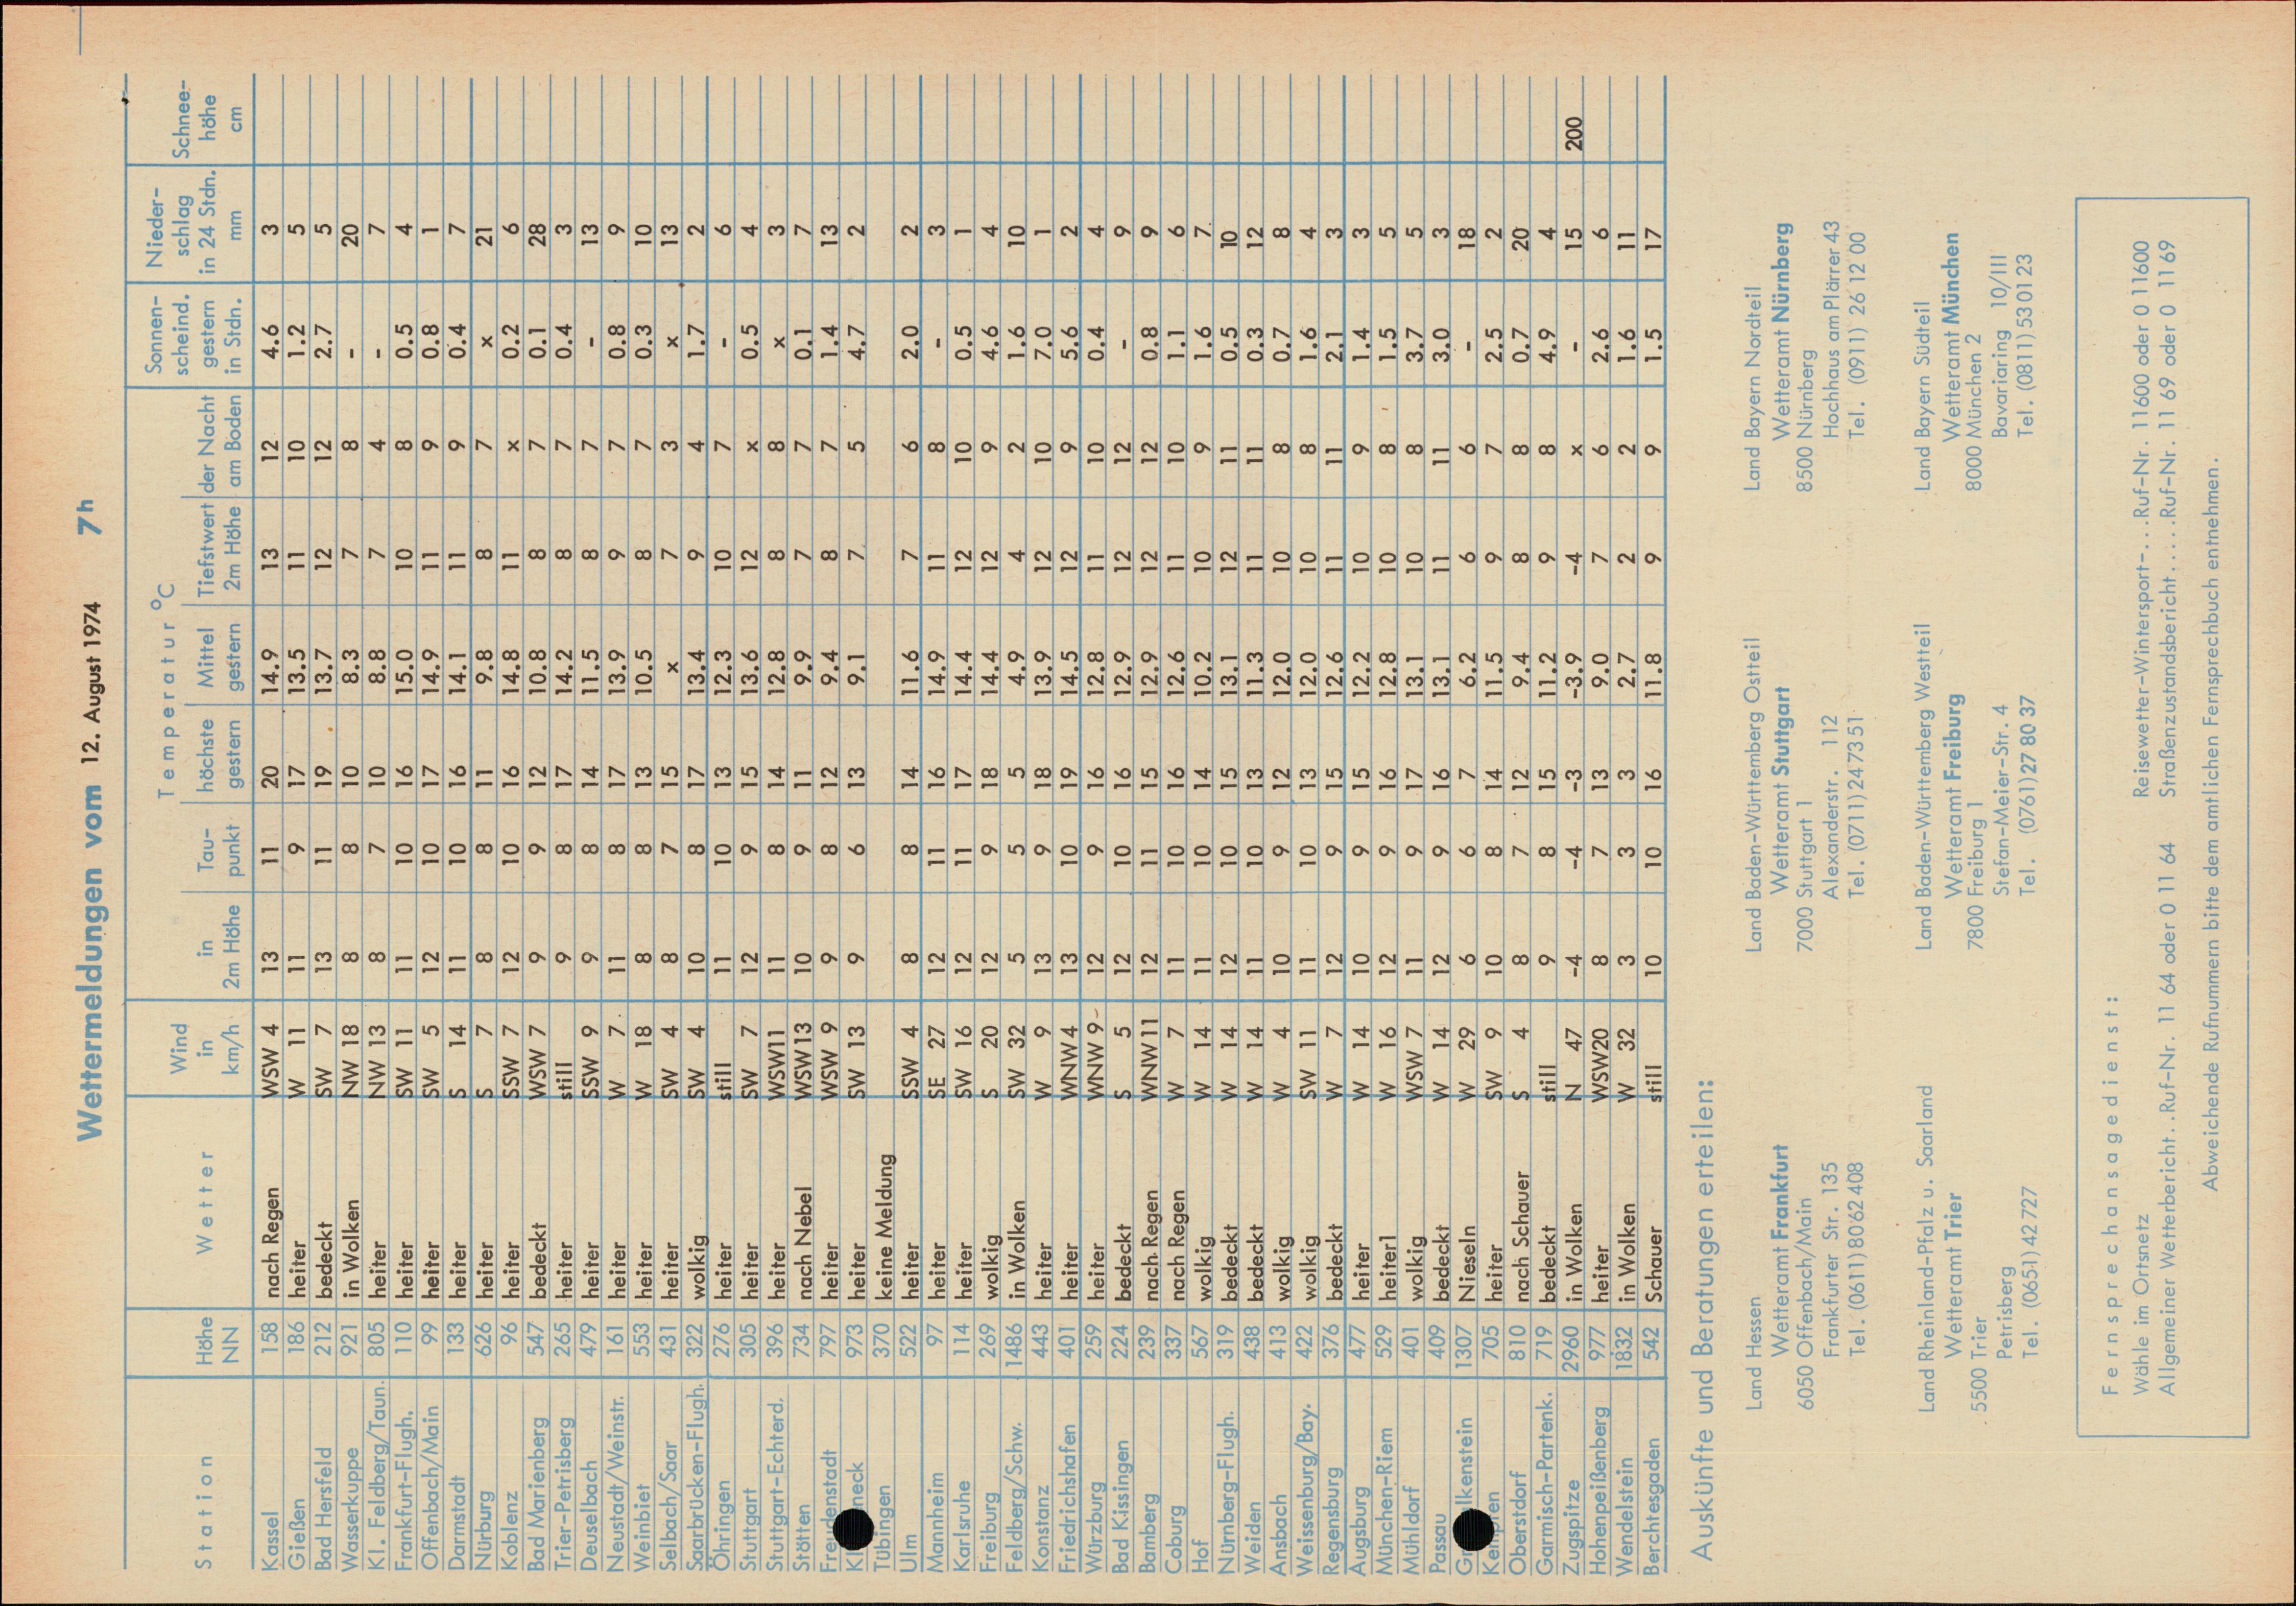 Wettermeldungen vom 12. August 1974 7h
Station Höhe NN Wetter Wind in km/h Temperatur °C in 2m Höhe Tau-punkt höchste gestern Mittel gestern Tiefstwert der Nacht 2m Höhe am Boden Sonnen-scheind. gestern in Stdn. Nieder-schlag in 24 Stdn. mm Schnee-höhe cm
Kassel 158 nach Regen WSW 4 13 11 20 14.9 13 12 4.6 3
Gießen 186 heiter W 11 11 9 17 13.5 11 10 1.2 5
Bad Hersfeld 212 bedeckt SW 7 13 11 19 13.7 12 12 2.7 5
Wasserkuppe 921 in Wolken NW 18 8 8 10 8.3 7 8 - 20
Kl. Feldberg/Taun. 805 heiter NW 13 8 7 10 8.8 7 4 - 7
Frankfurt-Flugh. 110 heiter SW 11 11 10 16 15.0 10 8 0.5 4
Offenbach/Main 99 heiter SW 5 12 10 17 14.9 11 9 0.8 1
Darmstadt 133 heiter S 14 11 10 16 14.1 11 9 0.4 7
Nürburg 626 heiter S 7 8 8 11 9.8 8 7 x 21
Koblenz 96 heiter SSW 7 12 10 16 14.8 11 x 0.2 6
Bad Marienberg 547 bedeckt WSW 7 9 9 12 10.8 8 7 0.1 28
Trier-Petrisberg 265 heiter still 9 8 17 14.2 8 7 0.4 3
Deuselbach 479 heiter SSW 9 9 8 14 11.5 8 7 - 13
Neustadt/Weinstr. 161 heiter W 7 11 8 17 13.9 9 7 0.8 9
Weinbiet 553 heiter W 18 8 8 13 10.5 8 7 0.3 10
Selbach/Saar 431 heiter SW 4 8 7 15 x 7 3 x 13
Saarbrücken-Flugh. 322 wolkig SW 4 10 8 17 13.4 9 4 1.7 2
Öhringen 276 heiter still 11 10 13 12.3 10 7 - 6
Stuttgart 305 heiter SW 7 12 9 15 13.6 12 x 0.5 4
Stuttgart-Echterd. 396 heiter WSW11 11 8 14 12.8 8 8 x 3
Stötten 734 nach Nebel WSW13 10 9 11 9.9 7 7 0.1 7
Freudenstadt 797 heiter WSW 9 9 8 12 9.4 8 7 1.4 13
973 heiter SW 13 9 6 13 9.1 7 5 4.7 2
Tübingen 370 keine Meldung
Ulm 522 heiter SSW 4 8 8 14 11.6 7 6 2.0 2
Mannheim 97 heiter SE 27 12 11 16 14.9 11 8 - 3
Karlsruhe 114 heiter SW 16 12 11 17 14.4 12 10 0.5 1
Freiburg 269 wolkig S 20 12 9 18 14.4 12 9 4.6 4
Feldberg/Schw. 1486 in Wolken SW 32 5 5 5 4.9 4 2 1.6 10
Konstanz 443 heiter W 9 13 9 18 13.9 12 10 7.0 1
Friedrichshafen 401 heiter WNW 4 13 10 19 14.5 12 9 5.6 2
Würzburg 259 heiter WNW 9 12 9 16 12.8 11 10 0.4 4
Bad Kissingen 224 bedeckt S 5 12 10 16 12.9 12 12 - 9
Bamberg 239 nach Regen WNW 11 12 11 15 12.9 12 12 0.8 9
Coburg 337 nach Regen W 7 11 10 16 12.6 11 10 1.1 6
Hof 567 wolkig W 14 11 10 14 10.2 10 9 1.6 7
Nürnberg-Flugh. 319 bedeckt W 14 12 10 15 13.1 12 11 0.5 10
Weiden 438 bedeckt W 14 11 10 13 11.3 11 11 0.3 12
Ansbach 413 wolkig W 4 10 9 12 12.0 10 8 0.7 8
Weissenburg/Bay. 422 wolkig SW 11 11 10 13 12.0 10 8 1.6 4
Regensburg 376 bedeckt W 7 12 9 15 12.6 11 11 2.1 3
Augsburg 477 heiter W 14 10 9 15 12.2 10 9 1.4 3
München-Riem 529 heiterl W 16 12 9 16 12.8 10 8 1.5 5
Mühldorf 401 wolkig WSW 7 11 9 17 13.1 10 8 3.7 5
Passau 409 bedeckt W 14 12 9 16 13.1 11 11 3.0 3
1307 Nieseln W 29 6 6 7 6.2 6 6 - 18
Kempten 705 heiter SW 9 10 8 14 11.5 9 7 2.5 2
Oberstdorf 810 nach Schauer S 4 8 7 12 9.4 8 8 0.7 20
Garmisch-Partenk. 719 bedeckt still 9 8 15 11.2 9 8 4.9 4
Zugspitze 2960 in Wolken N 47 -4 -4 -3 -3.9 -4 x - 15 200
Hohenpeißenberg 977 heiter WSW20 8 7 13 9.0 7 6 2.6 6
Wendelstein 1832 in Wolken W 32 3 3 3 2.7 2 2 1.6 11
Berchtesgaden 542 Schauer still 10 10 16 11.8 9 9 1.5 17
Auskünfte und Beratungen erteilen:
Land Hessen
Wetteramt Frankfurt
6050 Offenbach/Main
Frankfurter Str. 135
Tel. (0611) 80 62 408
Land Baden-Württemberg Ostteil
Wetteramt Stuttgart
7000 Stuttgart 1
Alexanderstr. 112
Tel. (0711) 24 73 51
Land Bayern Nordteil
Wetteramt Nürnberg
8500 Nürnberg
Hochhaus am Plärrer 43
Tel. (0911) 26 12 00
Land Rheinland-Pfalz u. Saarland
Wetteramt Trier
5500 Trier
Petrisberg
Tel. (0651) 42 727
Land Baden-Württemberg Westteil
Wetteramt Freiburg
7800 Freiburg 1
Stefan-Meier-Str. 4
Tel. (0761) 27 80 37
Land Bayern Südteil
Wetteramt München
8000 München 2
Bavariaring 10/III
Tel. (0811) 53 01 23
Fernsprechansagedienst:
Wähle im Ortsnetz Reisewetter-Wintersport-...Ruf-Nr. 11600 oder 0 11600
Allgemeiner Wetterbericht..Ruf-Nr. 11 64 oder 0 11 64 Straßenzustandsbericht.....Ruf-Nr. 11 69 oder 0 11 69
Abweichende Rufnummern bitte dem amtlichen Fernsprechbuch entnehmen.